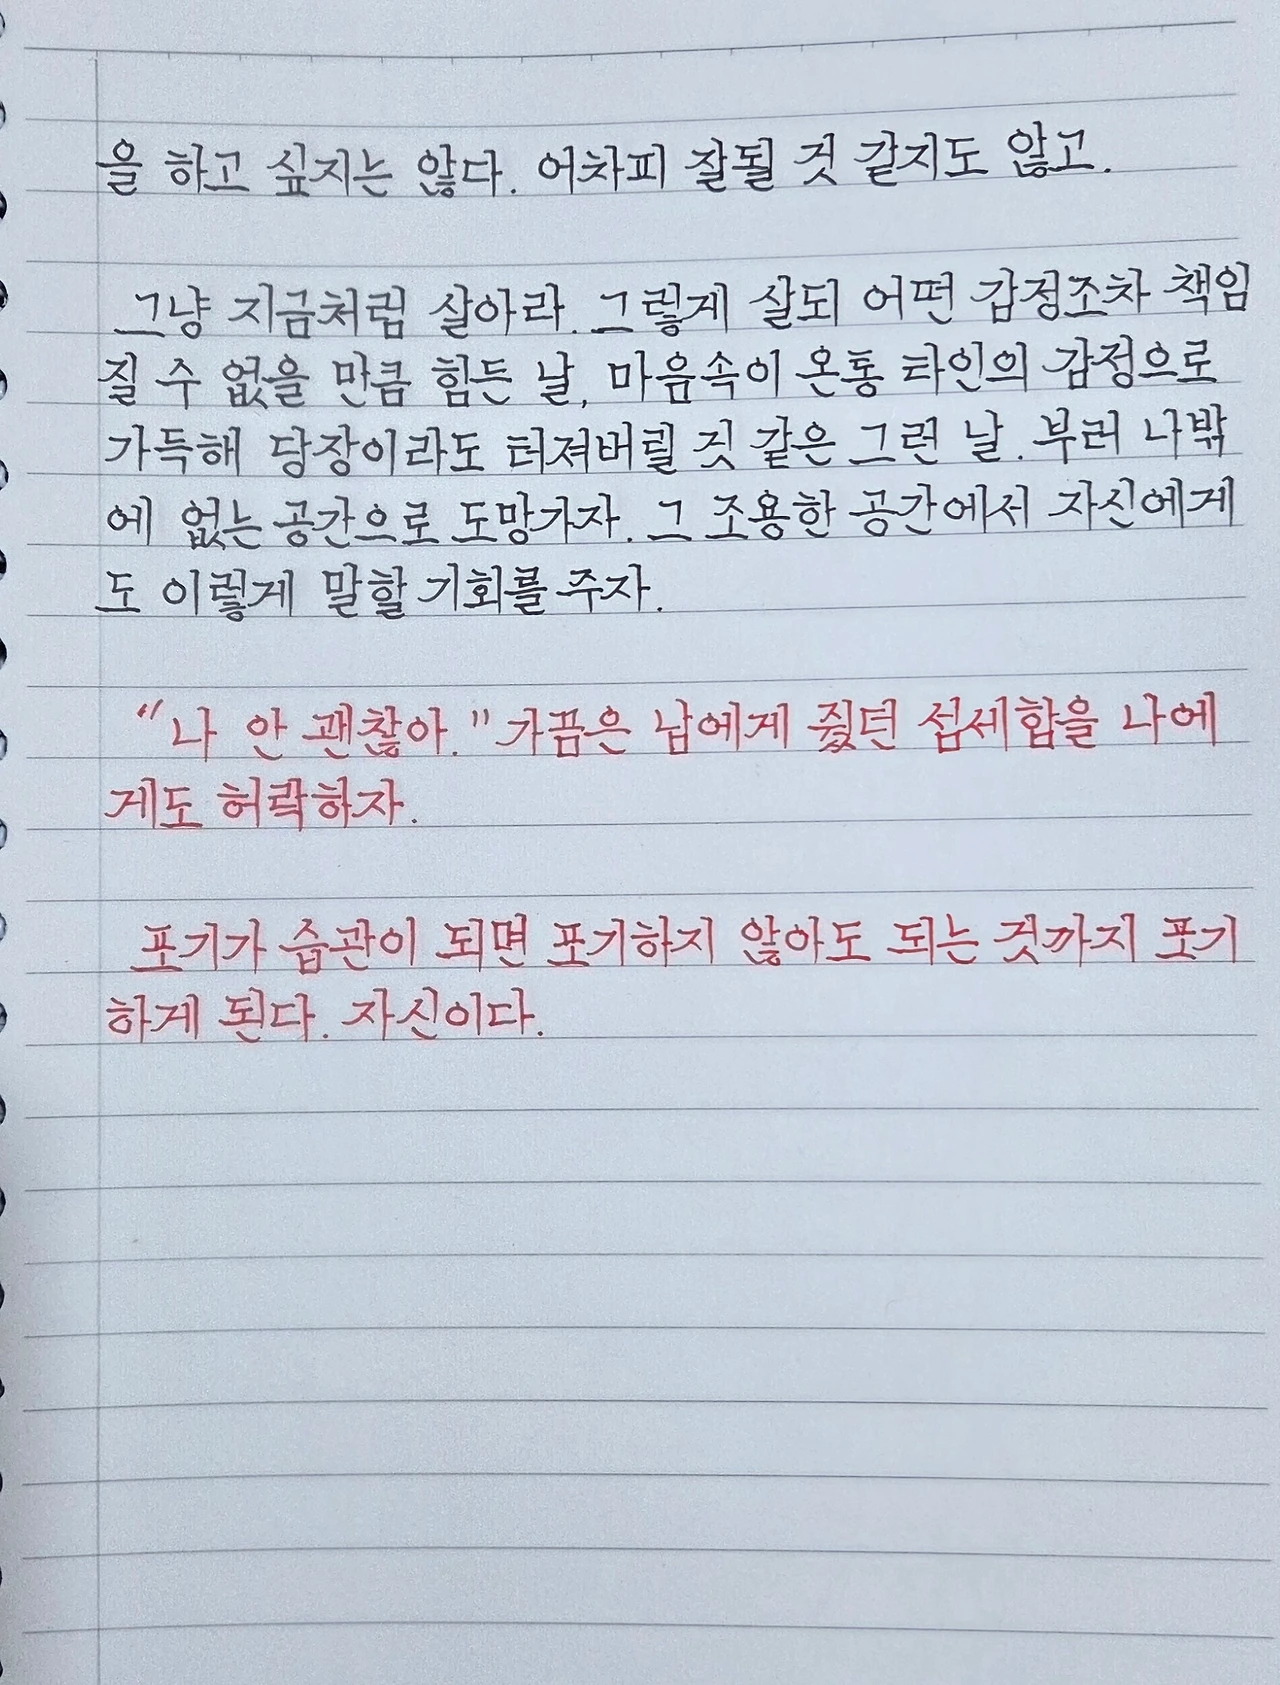 을 하고 싶지는 않다. 어차피 잘될 것 같지도 않고.
그냥 지금처럼 살아라. 그렇게 살되 어떤 감정조차 책임
질 수 없을 만큼 힘든 날, 마음속이 온통 타인의 감정으로
가득해 당장이라도 터져버릴 것 같은 그런 날. 부러 나밖
에 없는 공간으로 도망가자. 그 조용한 공간에서 자신에게
도 이렇게 말할 기회를 주자.
"나 안 괜찮아." 가끔은 남에게 줬던 섬세함을 나에
게도 허락하자.
포기가 습관이 되면 포기하지 않아도 되는 것까지 포기
하게 된다. 자신이다.